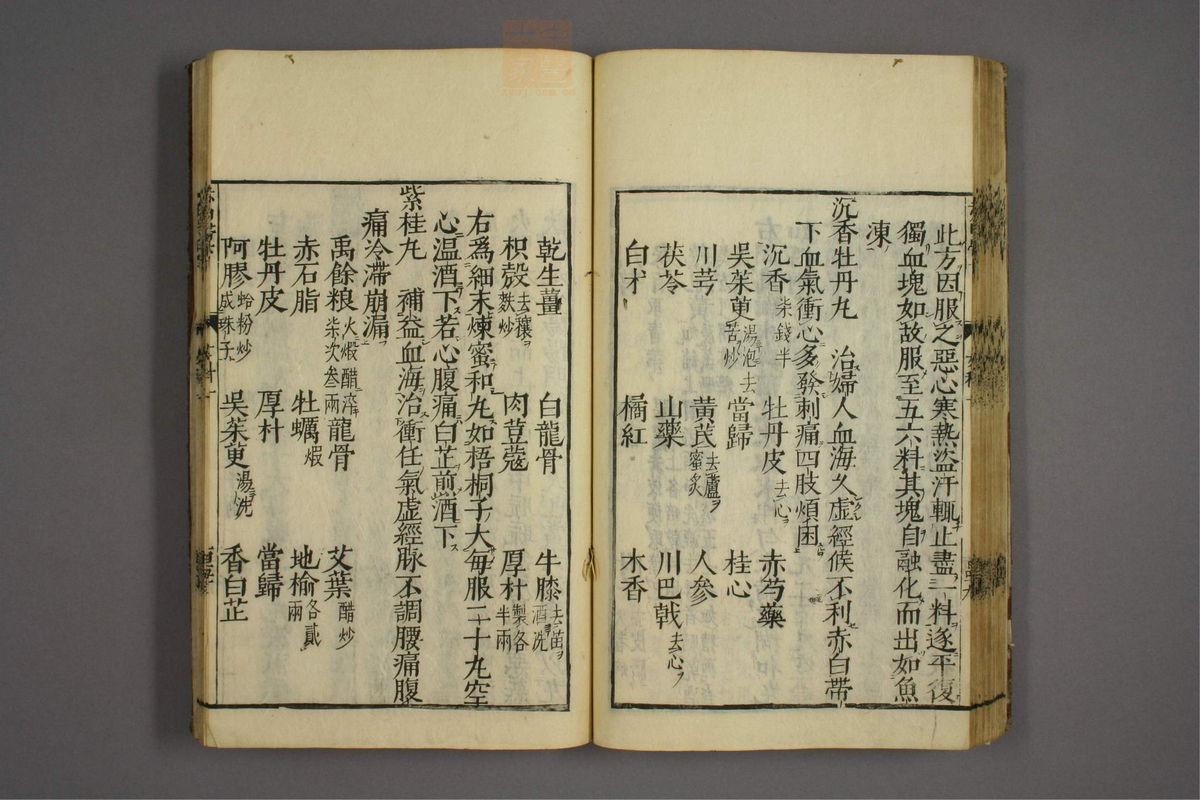 此方因服之惡心寒熱盜汗輒止盡一料遂平復
獨血塊如故服至五六料其塊自融化而出如魚
凍
沉香牡丹丸 治婦人血海久虛經候不利赤白帶
下血氣衝心多發刺痛四肢煩困
沉香柒錢半 牡丹皮去心 赤芍藥
吳茱萸湯泡去苦炒 當歸 桂心
川芎 黃芪去蘆蜜炙 人參
茯苓 山藥 川巴戟去心
白朮 橘紅 木香
乾生薑 白龍骨 牛膝去苗酒洗
枳殼去穰麩炒 肉荳蔻 厚朴製各半兩
右為細末煉蜜和丸如梧桐子大每服二十丸空
心溫酒下若心腹痛白芷煎酒下
紫桂丸 補益血海治衝任氣虛經脉不調腰痛腹
痛冷滯崩漏
禹餘粮火煆醋淬柒次叁兩 龍骨 艾葉醋炒
赤石脂 牡蠣煆 地榆各貳兩
牡丹皮 厚朴 當歸
阿膠蛤粉炒成珠子 吳茱萸湯洗 香白芷